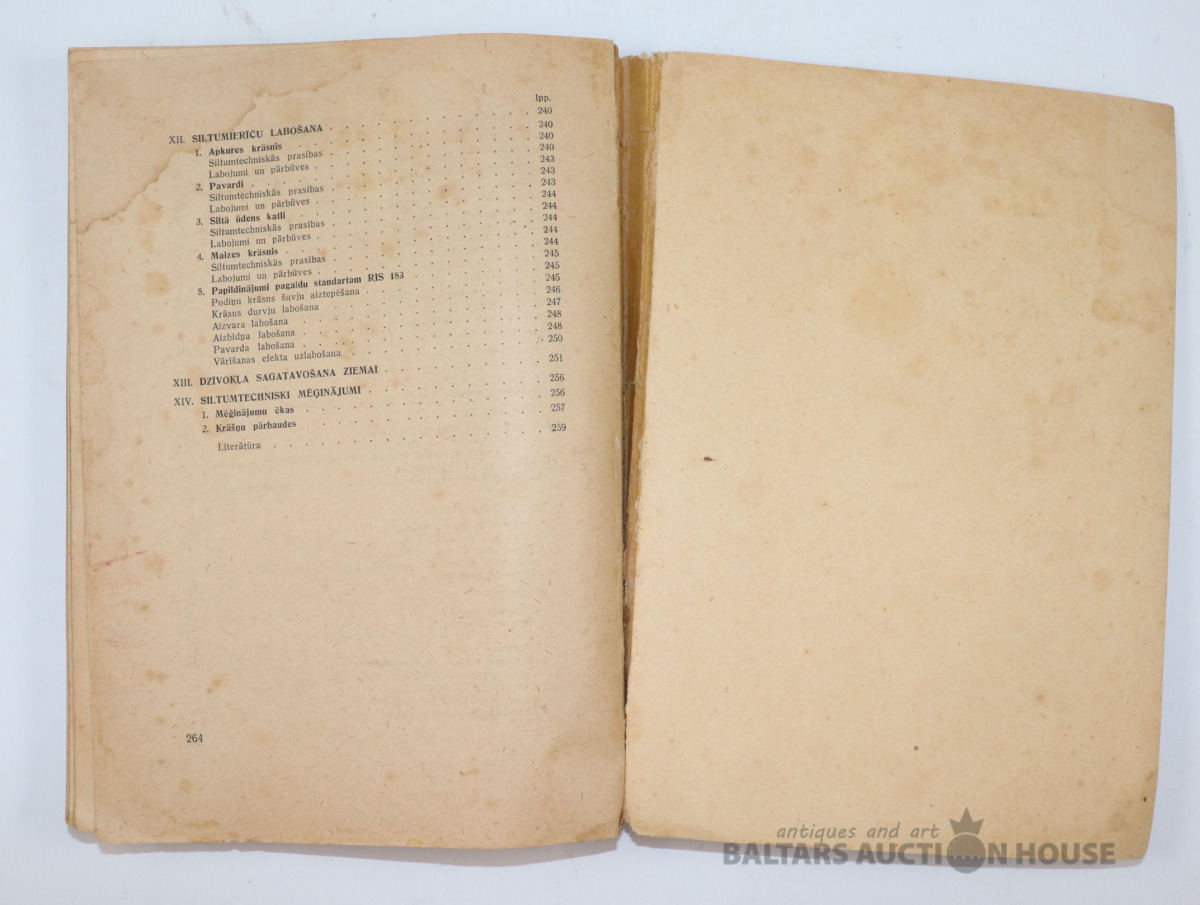 lpp.
XII. SILTUMIERĪČU LABOŠANA . . . . . . . . . . 240
1. Apkures krāsnis . . . . . . . . . . 240
Siltumtechniskās prasības . . . . . . . . . . 240
Labojumi un pārbūves . . . . . . . . . . 240
2. Pavardi . . . . . . . . . . 243
Siltumtechniskās prasības . . . . . . . . . . 243
Labojumi un pārbūves . . . . . . . . . . 243
3. Siltā ūdens katli . . . . . . . . . . 244
Siltumtechniskās prasības . . . . . . . . . . 244
Labojumi un pārbūves . . . . . . . . . . 244
4. Maizes krāsnis . . . . . . . . . . 244
Siltumtechniskās prasības . . . . . . . . . . 244
Labojumi un pārbūves . . . . . . . . . . 245
5. Papildinājumi pagaidu standartam RIS 183 . . . . . . 245
Podiņu krāsns šuvju aiztepēšana . . . . . . . . 245
Krāsns durvju labošana . . . . . . . . . . 246
Aizvara labošana . . . . . . . . . . 247
Aizbīdņa labošana . . . . . . . . . . 248
Pavarda labošana . . . . . . . . . . 248
Vārīšanas efekta uzlabošana . . . . . . . . . . 250
XIII. DZĪVOKĻA SAGATAVOŠANA ZIEMAI . . . . . . . . 251
XIV. SILTUMTECHNISKI MĒĢINĀJUMI . . . . . . . . 256
1. Mēģinājumu ēkas . . . . . . . . . . 256
2. Krāšņu pārbaudes . . . . . . . . . . 257
Literātūra . . . . . . . . . . 259
264
antiques and art
BALTARS AUCTION HOUSE